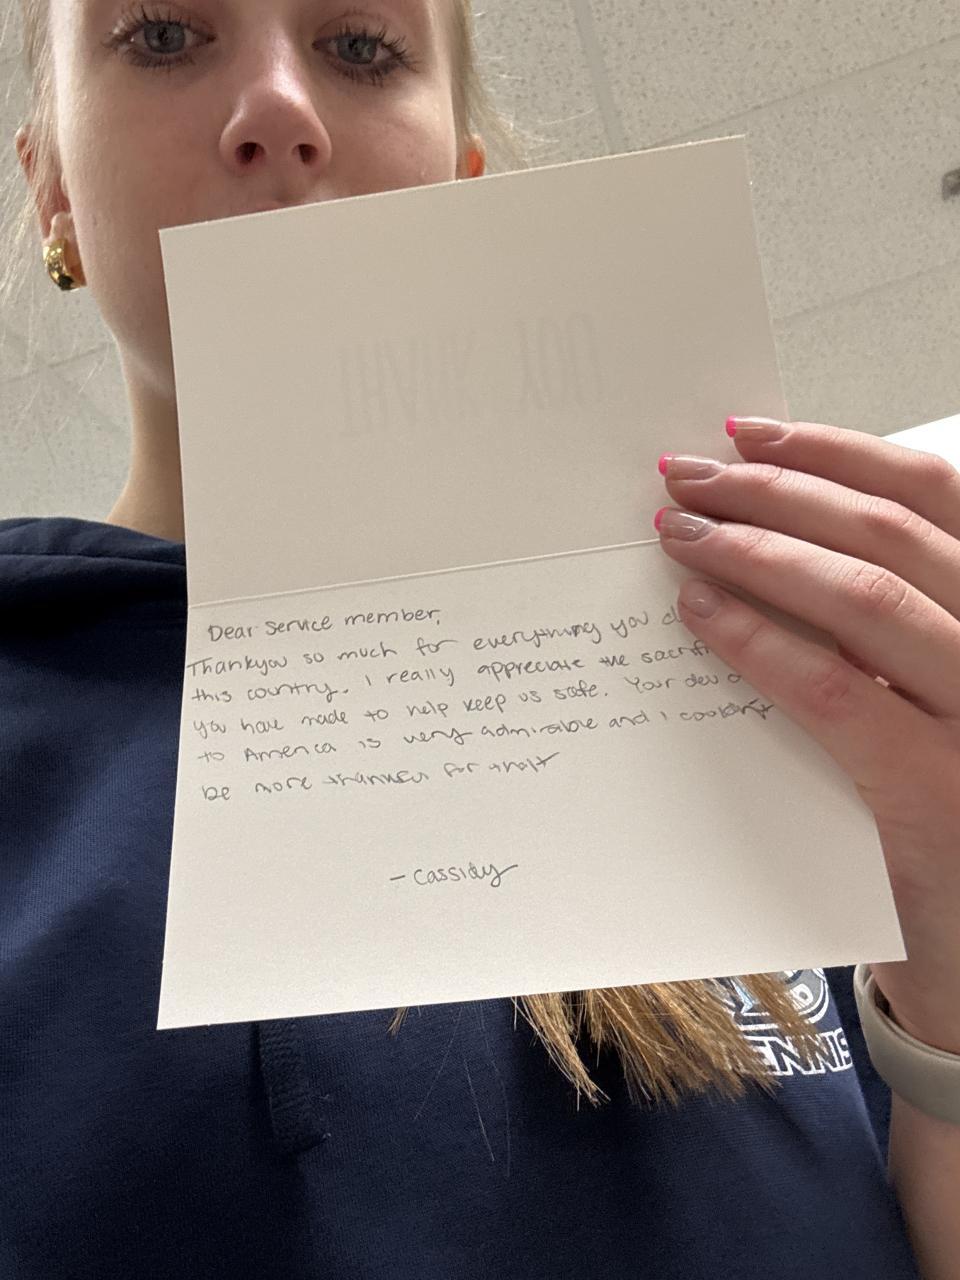 THANK YOU
Dear Service member,
Thankyou so much for everything you d
this country. I really appreciate the sacrifi
you have made to help keep us safe. Your dev
to America is very admirable and I couldn't
be more thankful for that
- Cassidy
ENNIS